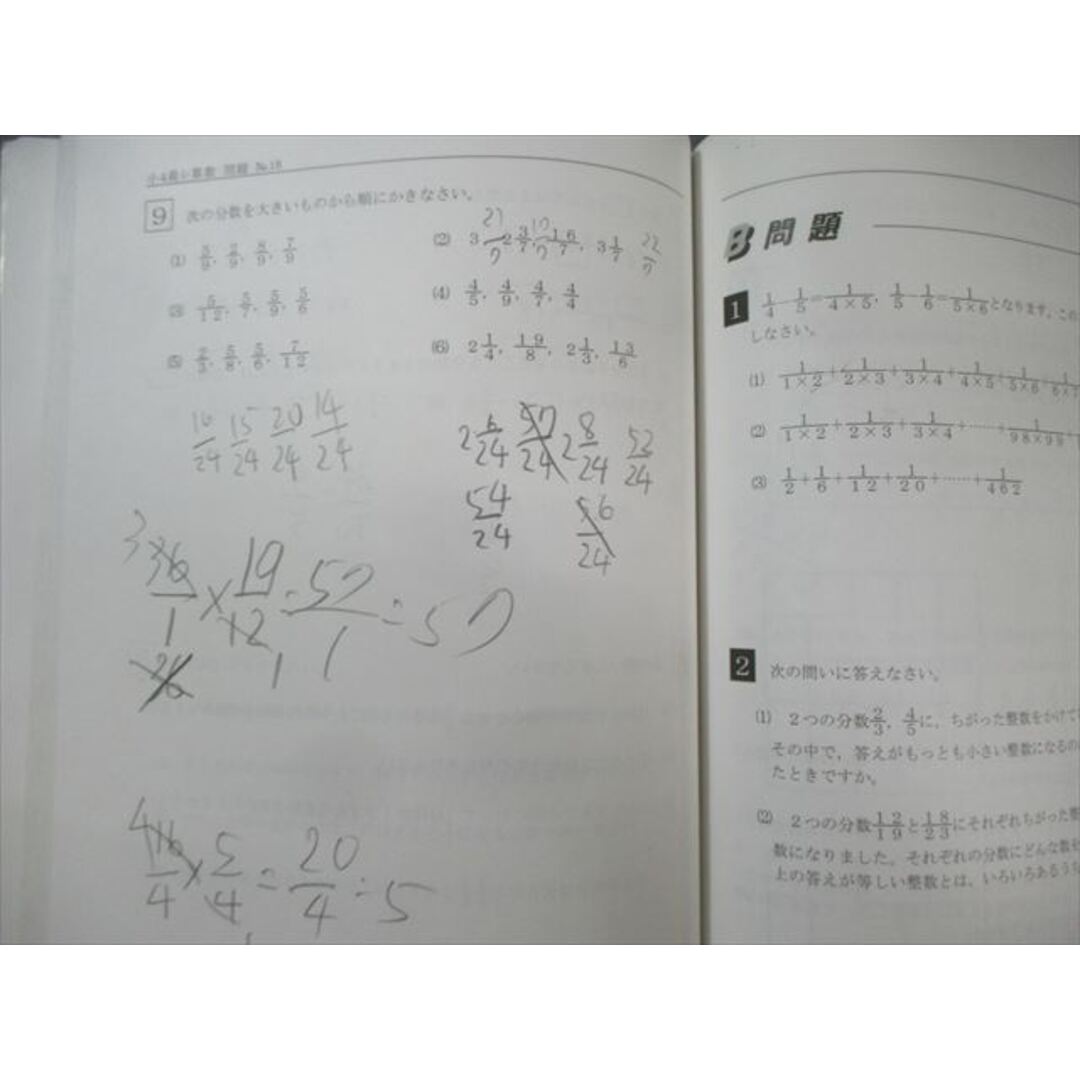 小4最レ算数 問題 №18
9 次の分数を大きいものから順にかきなさい。
(1) 5/9, 2/9, 8/9, 7/9
(2) 3, 2 3/7, 16/7, 3 1/7
21/7 17/7 22/7
(3) 5/12, 5/7, 5/9, 5/6
(4) 4/5, 4/9, 4/7, 4/4
(5) 2/3, 5/8, 5/6, 7/12
(6) 2 1/4, 19/8, 2 1/3, 13/6
16/24 15/24 20/24 14/24
2 6/24 57/24 2 8/24 52/24
54/24 56/24
3
36/1 × 19/12 = 57/1 = 57
1
4
16/4 × 5/4 = 20/4 = 5
B 問題
1 1/4 - 1/5 = 1/4×5, 1/5 - 1/6 = 1/5×6 となります。この
しなさい。
(1) 1/1×2 + 1/2×3 + 1/3×4 + 1/4×5 + 1/5×6 + 1/6×7
(2) 1/1×2 + 1/2×3 + 1/3×4 + …… + 1/98×99 +
(3) 1/2 + 1/6 + 1/12 + 1/20 + …… + 1/462
2 次の問いに答えなさい。
(1) 2つの分数2/3, 4/5に, ちがった整数をかけて
その中で, 答えがもっとも小さい整数になるの
たときですか。
(2) 2つの分数12/19と18/23にそれぞれちがった整
数になりました。それぞれの分数にどんな数を
上の答えが等しい整数とは, いろいろあるうち